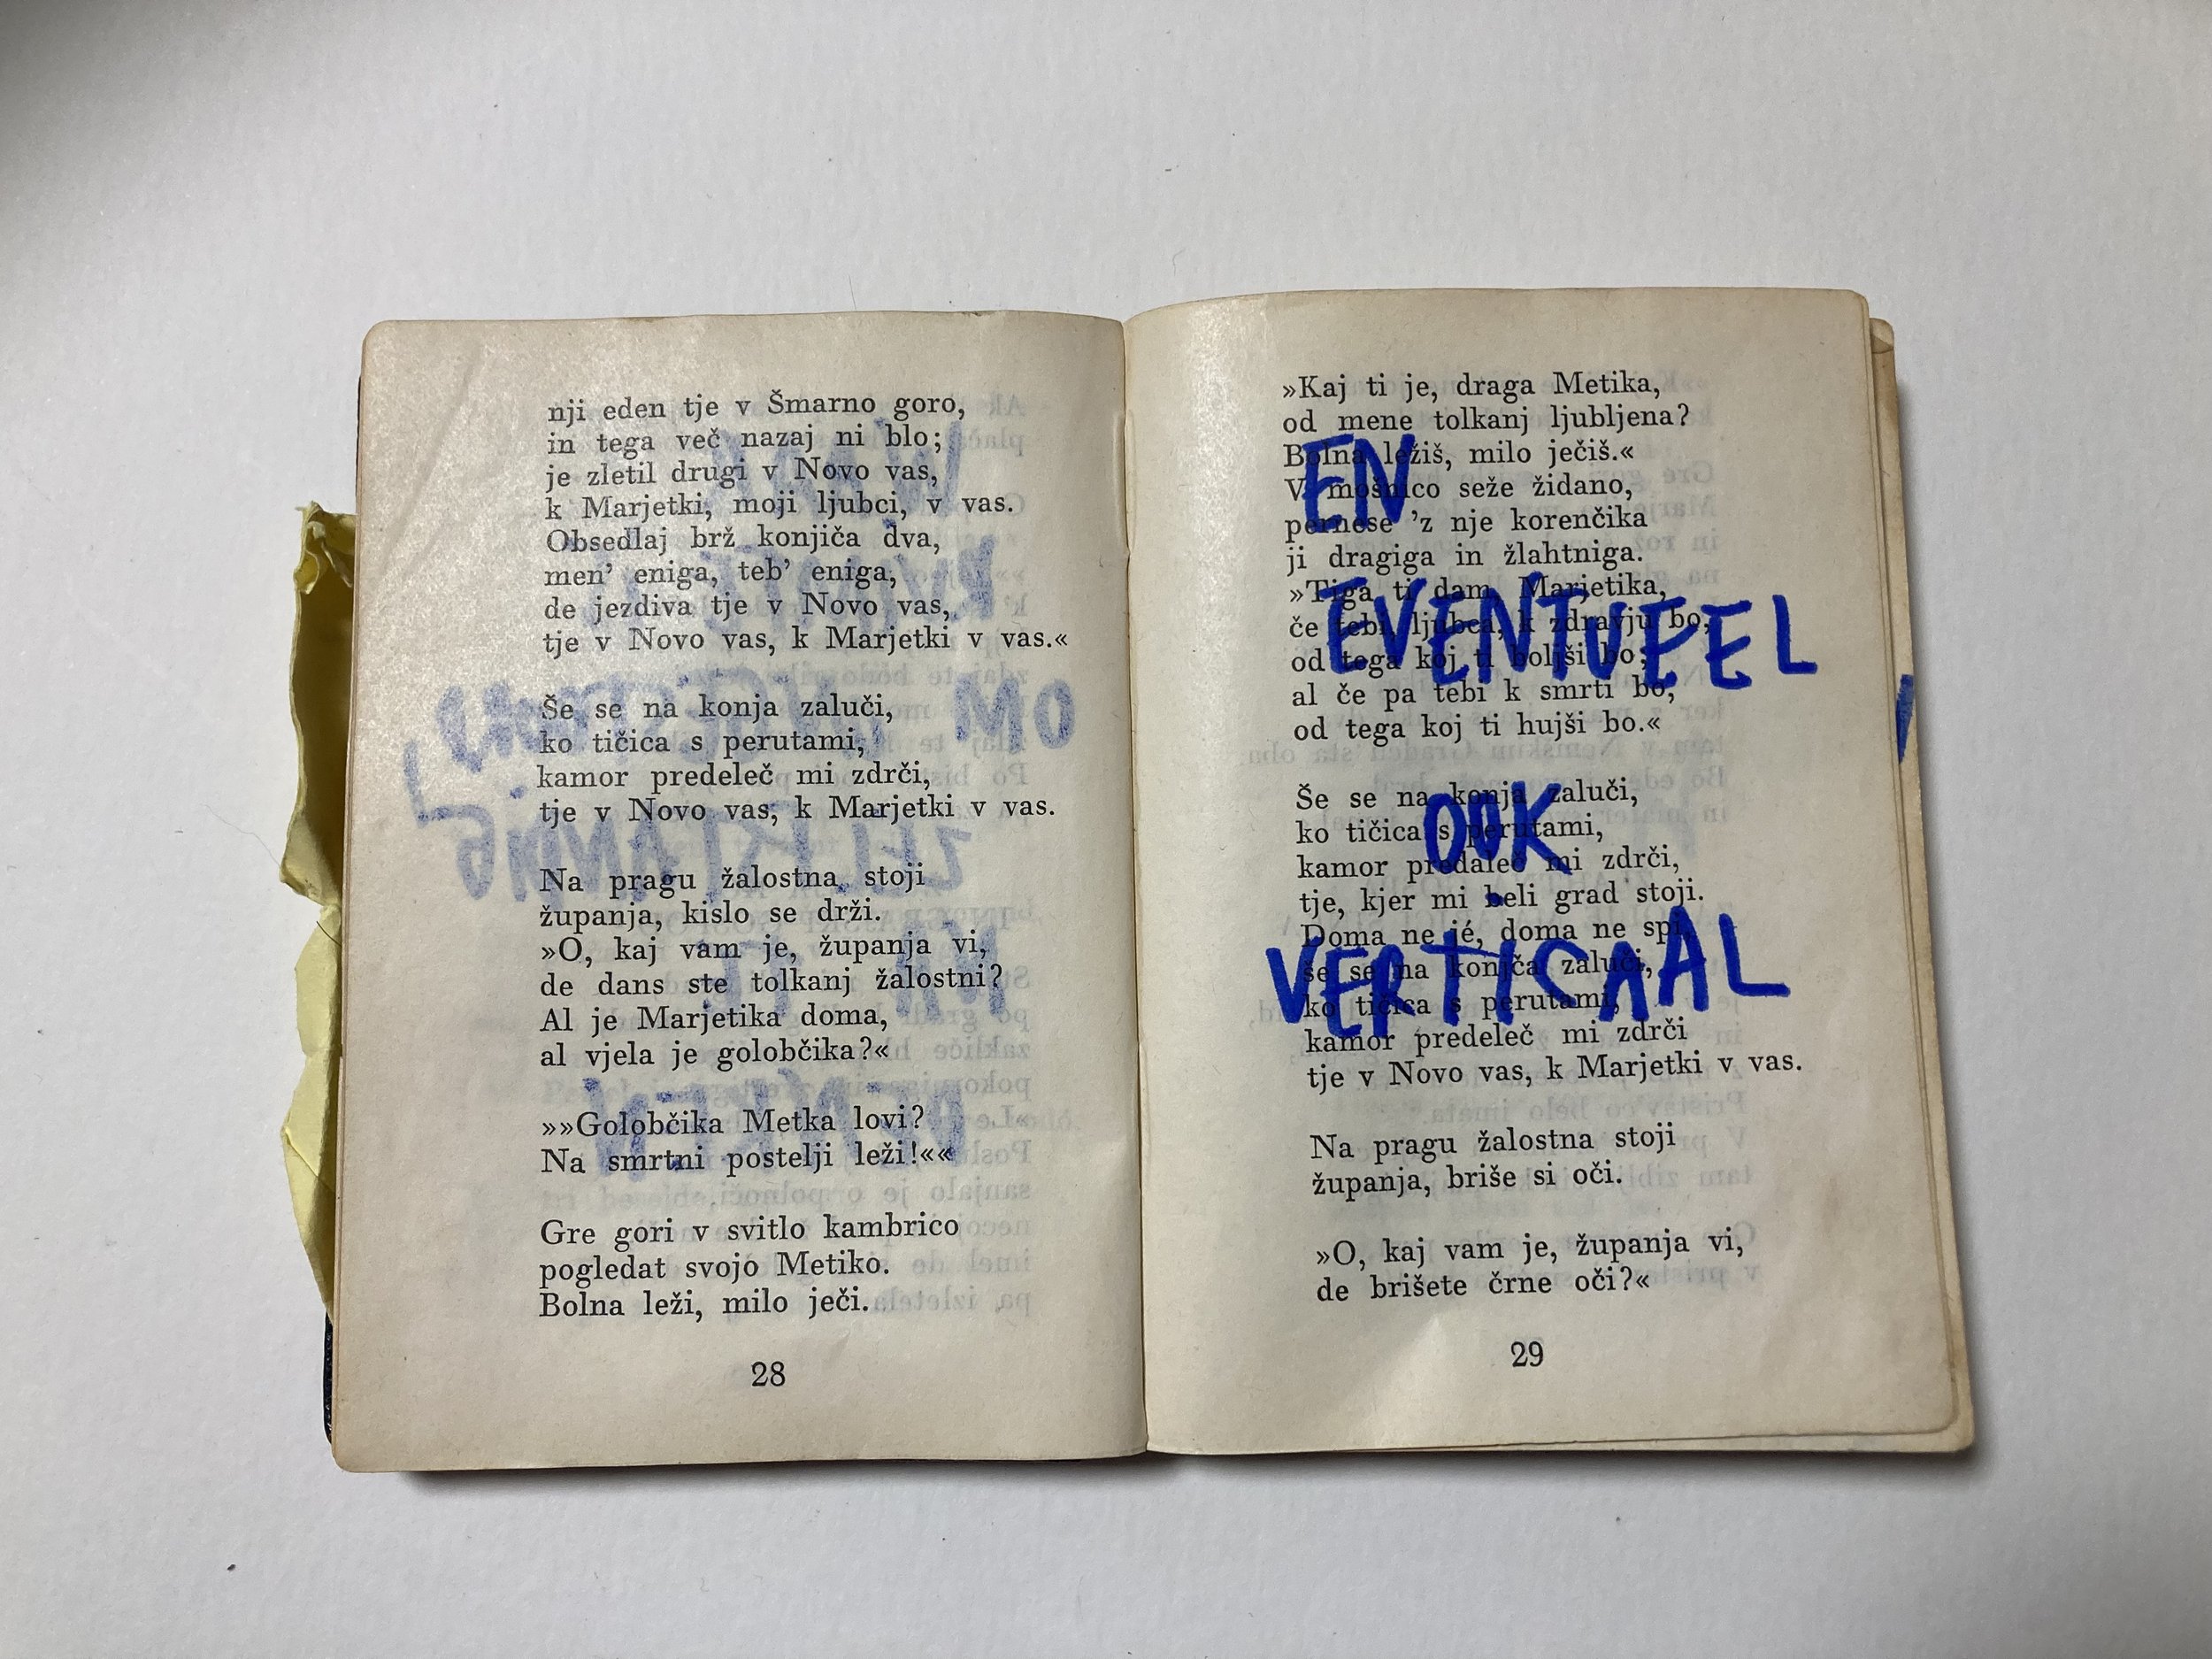 nji eden tje v Šmarno goro,
in tega več nazaj ni blo;
je zletil drugi v Novo vas,
k Marjetki, moji ljubci, v vas.
Obsedlaj brž konjiča dva,
men’ eniga, teb’ eniga,
de jezdiva tje v Novo vas,
tje v Novo vas, k Marjetki v vas.«
Še se na konja zaluči,
ko tičica s perutami,
kamor predeleč mi zdrči,
tje v Novo vas, k Marjetki v vas.
Na pragu žalostna stoji
županja, kislo se drži.
»O, kaj vam je, županja vi,
de dans ste tolkanj žalostni?
Al je Marjetika doma,
al vjela je golobčika?«
»»Golobčika Metka lovi?
Na smrtni postelji leži!««
Gre gori v svitlo kambrico
pogledat svojo Metiko.
Bolna leži, milo ječi.
28
»Kaj ti je, draga Metika,
od mene tolkanj ljubljena?
Bolna ležiš, milo ječiš.«
V mošnico seže židano,
pernese ’z nje korenčika
ji dragiga in žlahtniga.
»Tiga ti dam, Marjetika,
če tebi, ljubca, k zdravju bo,
od tega koj ti boljši bo;
al če pa tebi k smrti bo,
od tega koj ti hujši bo.«
Še se na konja zaluči,
ko tičica s perutami,
kamor predaleč mi zdrči,
tje, kjer mi beli grad stoji.
Doma ne jé, doma ne spi,
še se na konjča zaluči,
ko tičica s perutami,
kamor predeleč mi zdrči
tje v Novo vas, k Marjetki v vas.
Na pragu žalostna stoji
županja, briše si oči.
»O, kaj vam je, županja vi,
de brišete črne oči?«
29
EN
EVENTUEEL
OOK
VERTICAAL